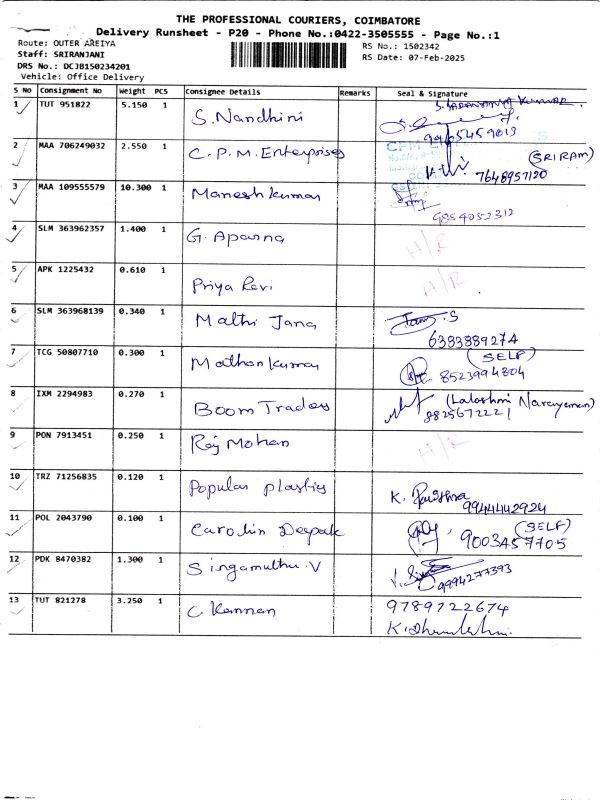 THE PROFESSIONAL COURIERS, COIMBATORE
Delivery Runsheet - P20 - Phone No.:0422-3505555 - Page No.:1
Route: OUTER AREIYA
RS No.: 1502342
Staff: SRIRANJANI
RS Date: 07-Feb-2025
DRS No.: DCJB150234201
Vehicle: Office Delivery
S No Consignment No Weight PCS Consignee Details Remarks Seal & Signature
1 TUT 951822 5.150 1 S. Nandhini
2 MAA 706249032 2.550 1 C.P.M. Enterprises (SRIRAM)
7648957120
3 MAA 109555579 10.300 1 Manesh kumar
9854052312
4 SLM 363962357 1.400 1 G. Aparna H/R
5 APK 1225432 0.610 1 Priya Revi H/R
6 SLM 363968139 0.340 1 Malhi Jana
6383889274
7 TCG 50807710 0.300 1 Mathan kumar (SELF)
8523994804
8 IXM 2294983 0.270 1 Boom Traders (Lakshmi Narayanan)
8825672221
9 PON 7913451 0.250 1 Raj Mohan H/R
10 TRZ 71256835 0.120 1 Popular plastics K.
9944442924
11 POL 2043790 0.100 1 Carolin Deepak (SELF)
9003457705
12 PDK 8470382 1.300 1 Singamuthu. V
9994277393
13 TUT 821278 3.250 1 C. Kannan 9789722674